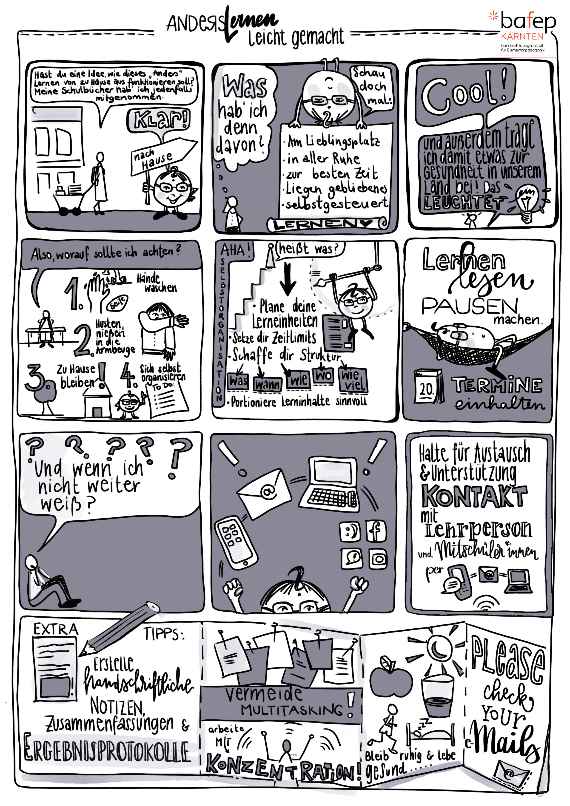 ANDERS Lernen
Leicht gemacht
bafep
KÄRNTEN
Hast du eine Idee, wie dieses „Anders"
Lernen von zu Hause aus funktionieren soll?
Meine Schulbücher hab ich jedenfalls
mitgenommen.
Klar!
nach
Hause
Was
hab' ich
denn
davon?
Schau
doch
mal:
· Am Lieblingsplatz
· in aller Ruhe
· zur besten Zeit
· Liegen gebliebenes
· selbstgesteuert
LERNEN
Cool!
und außerdem trage
ich damit etwas zur
Gesundheit in unserem
Land bei! Das
LEUCHTET
Also, worauf sollte ich achten?
1.
Hände
waschen
Seife
2.
Husten,
nießen
in die
Armbeuge
3.
Zu Hause
bleiben!
4.
Sich selbst
organisieren
To Do:
AHA!
heißt was?
SELBSTORGANISATION
· Plane deine
Lerneinheiten
· Setze dir Zeitlimits
· Schaffe dir Struktur
was
wann
wie
wo
wie
viel
· Portioniere Lerninhalte sinnvoll
Lernen
lesen
PAUSEN
machen.
20.
TERMINE
einhalten
? ? ? ? ?
Und wenn ich
nicht weiter
weiß?
! !
Halte für Austausch
& Unterstützung
KONTAKT
mit
Lehrperson
und Mitschüler*innen
per
EXTRA
TIPPS:
Erstelle
handschriftliche
NOTIZEN,
Zusammenfassungen &
ERGEBNISPROTOKOLLE
Vermeide
MULTITASKING!
arbeite
MIT
KONZENTRATION!
Bleib ruhig & lebe
gesund.....
PLEASE
check
YOUR
e-Mails